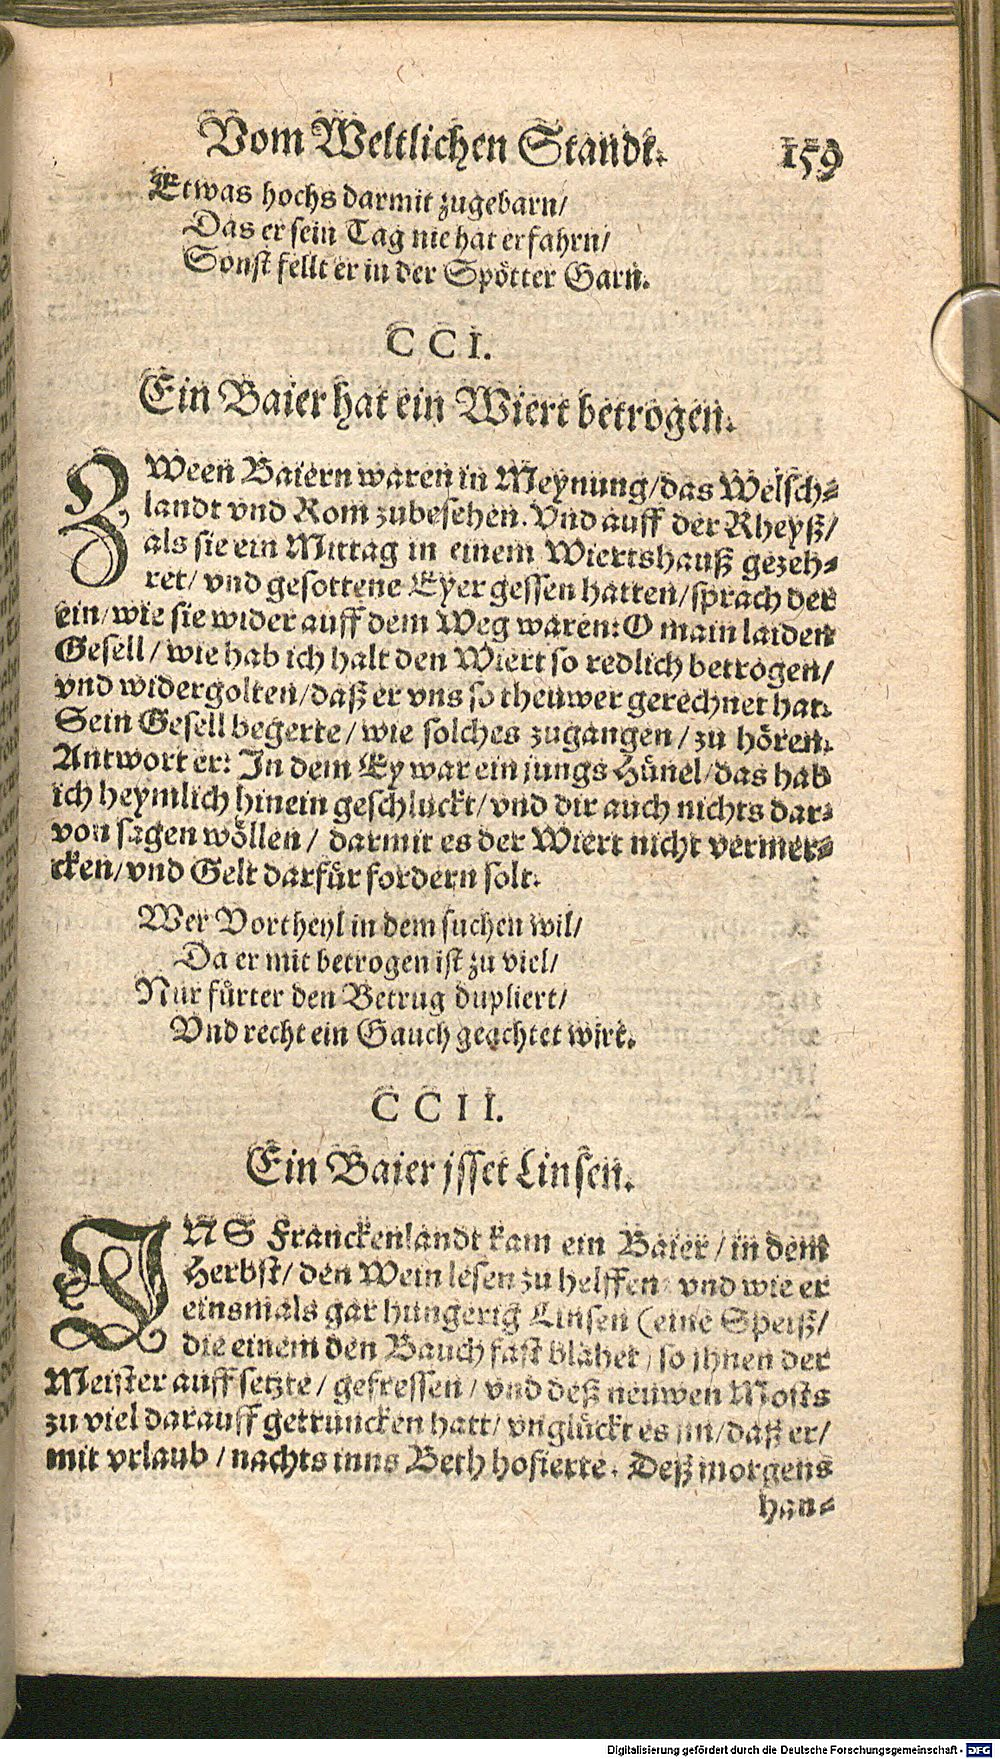 Vom Weltlichen Standt. 159
Etwas hochs darmit zugebarn/
Das er sein Tag nie hat erfahrn/
Sonst fellt er in der Spötter Garn.
CCI.
Ein Baier hat ein Wiert betrogen.
ZWeen Baiern waren in Meynung/das Welsch⸗
landt vnd Rom zubesehen. Vnd auff der Rheyß/
als sie ein Mittag in einem Wiertshauß gezeh⸗
ret/ vnd gesottene Eyer gessen hatten/sprach der
ein/wie sie wider auff dem Weg waren: O main laiden
Gesell/ wie hab ich halt den Wiert so redlich betrogen/
vnd widergolten/daß er vns so theuwer gerechnet hat.
Sein Gesell begerte/ wie solches zugangen/ zu hören.
Antwort er: In dem Ey war ein jungs Hünel/das hab
ich heymlich hinein geschluckt/ vnd dir auch nichts dar⸗
von sagen wöllen/ darmit es der Wiert nicht vermer⸗
cken/vnd Gelt darfür fordern solt.
Wer Vortheyl in dem suchen wil/
Da er mit betrogen ist zu viel/
Nur fürter den Betrug dupliert/
Vnd recht ein Gauch geachtet wirt.
CCII.
Ein Baier jsset Linsen.
INS Franckenlandt kam ein Baier/ in dem
Herbst/ den Wein lesen zu helffen/ vnd wie er
einsmals gar hungerig Linsen (eine Speiß/
die einem den Bauch fast blähet) so jhnen der
Meister auff setzte/ gefressen/ vnd deß neuwen Mosts
zu viel darauff getruncken hatt/ vnglückt es jm/daß er/
mit vrlaub/ nachts inns Beth hofierte. Deß morgens
han⸗
Digitalisierung gefördert durch die Deutsche Forschungsgemeinschaft - DFG